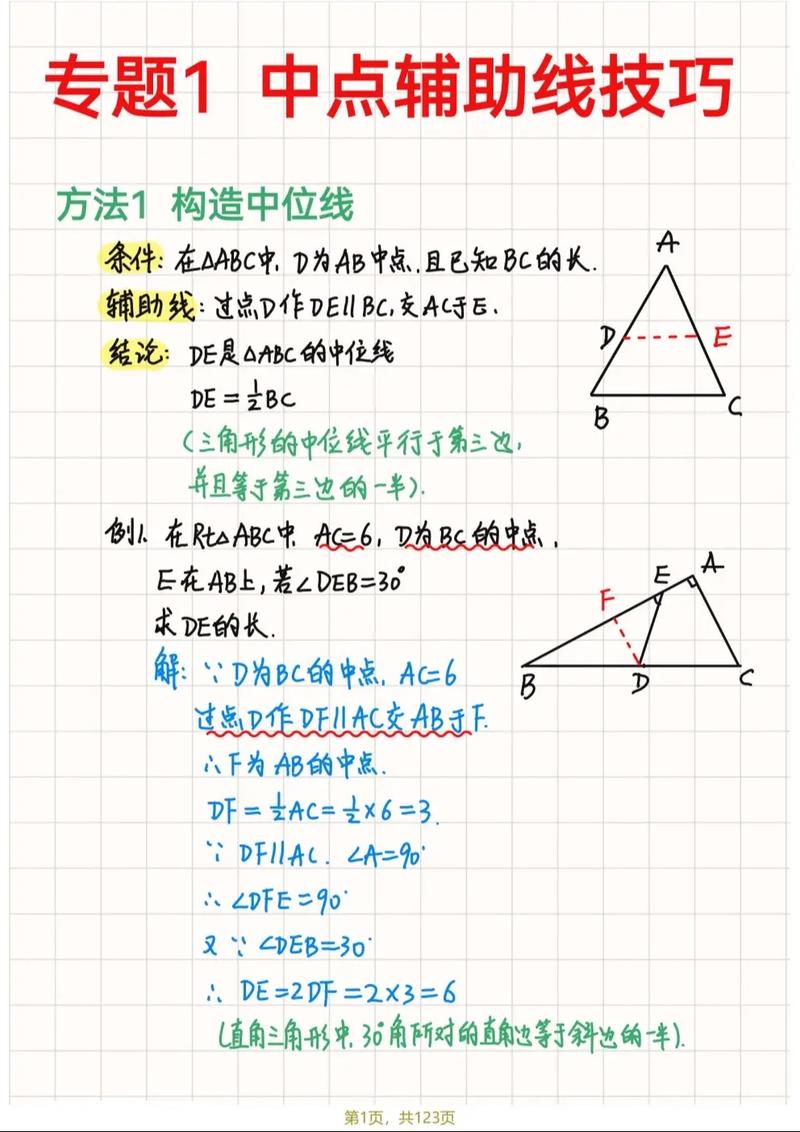 专题1 中点辅助线技巧
方法1 构造中位线
条件: 在△ABC中, D为AB中点, 且已知BC的长.
辅助线: 过点D作DE∥BC, 交AC于E.
结论: DE是△ABC的中位线
DE=½BC
(三角形的中位线平行于第三边,
并且等于第三边的一半).
A
D
E
B
C
例1. 在Rt△ABC中, AC=6, D为BC的中点,
E在AB上, 若∠DEB=30°
求DE的长.
A
E
F
B
D
C
解: ∵D为BC的中点, AC=6
过点D作DF∥AC交AB于F.
∴F为AB的中点.
DF=½AC=½×6=3.
∵ DF∥AC. ∠A=90°
∴ ∠DFE=90°
又∵ ∠DEB=30°
∴ DE=2DF=2×3=6
(直角三角形中, 30°角所对的直角边等于斜边的一半).
第1页，共123页